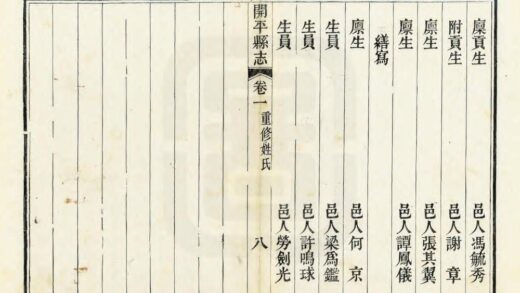 廩貢生 邑人馮毓秀
附貢生 邑人謝章
廩生 邑人張其翼
廩生 邑人譚鳳儀
繕寫
廩生 邑人何京
生員 邑人梁為鑑
生員 邑人許鳴球
生員 邑人勞劍光
開平縣志 卷一 重修姓氏 八